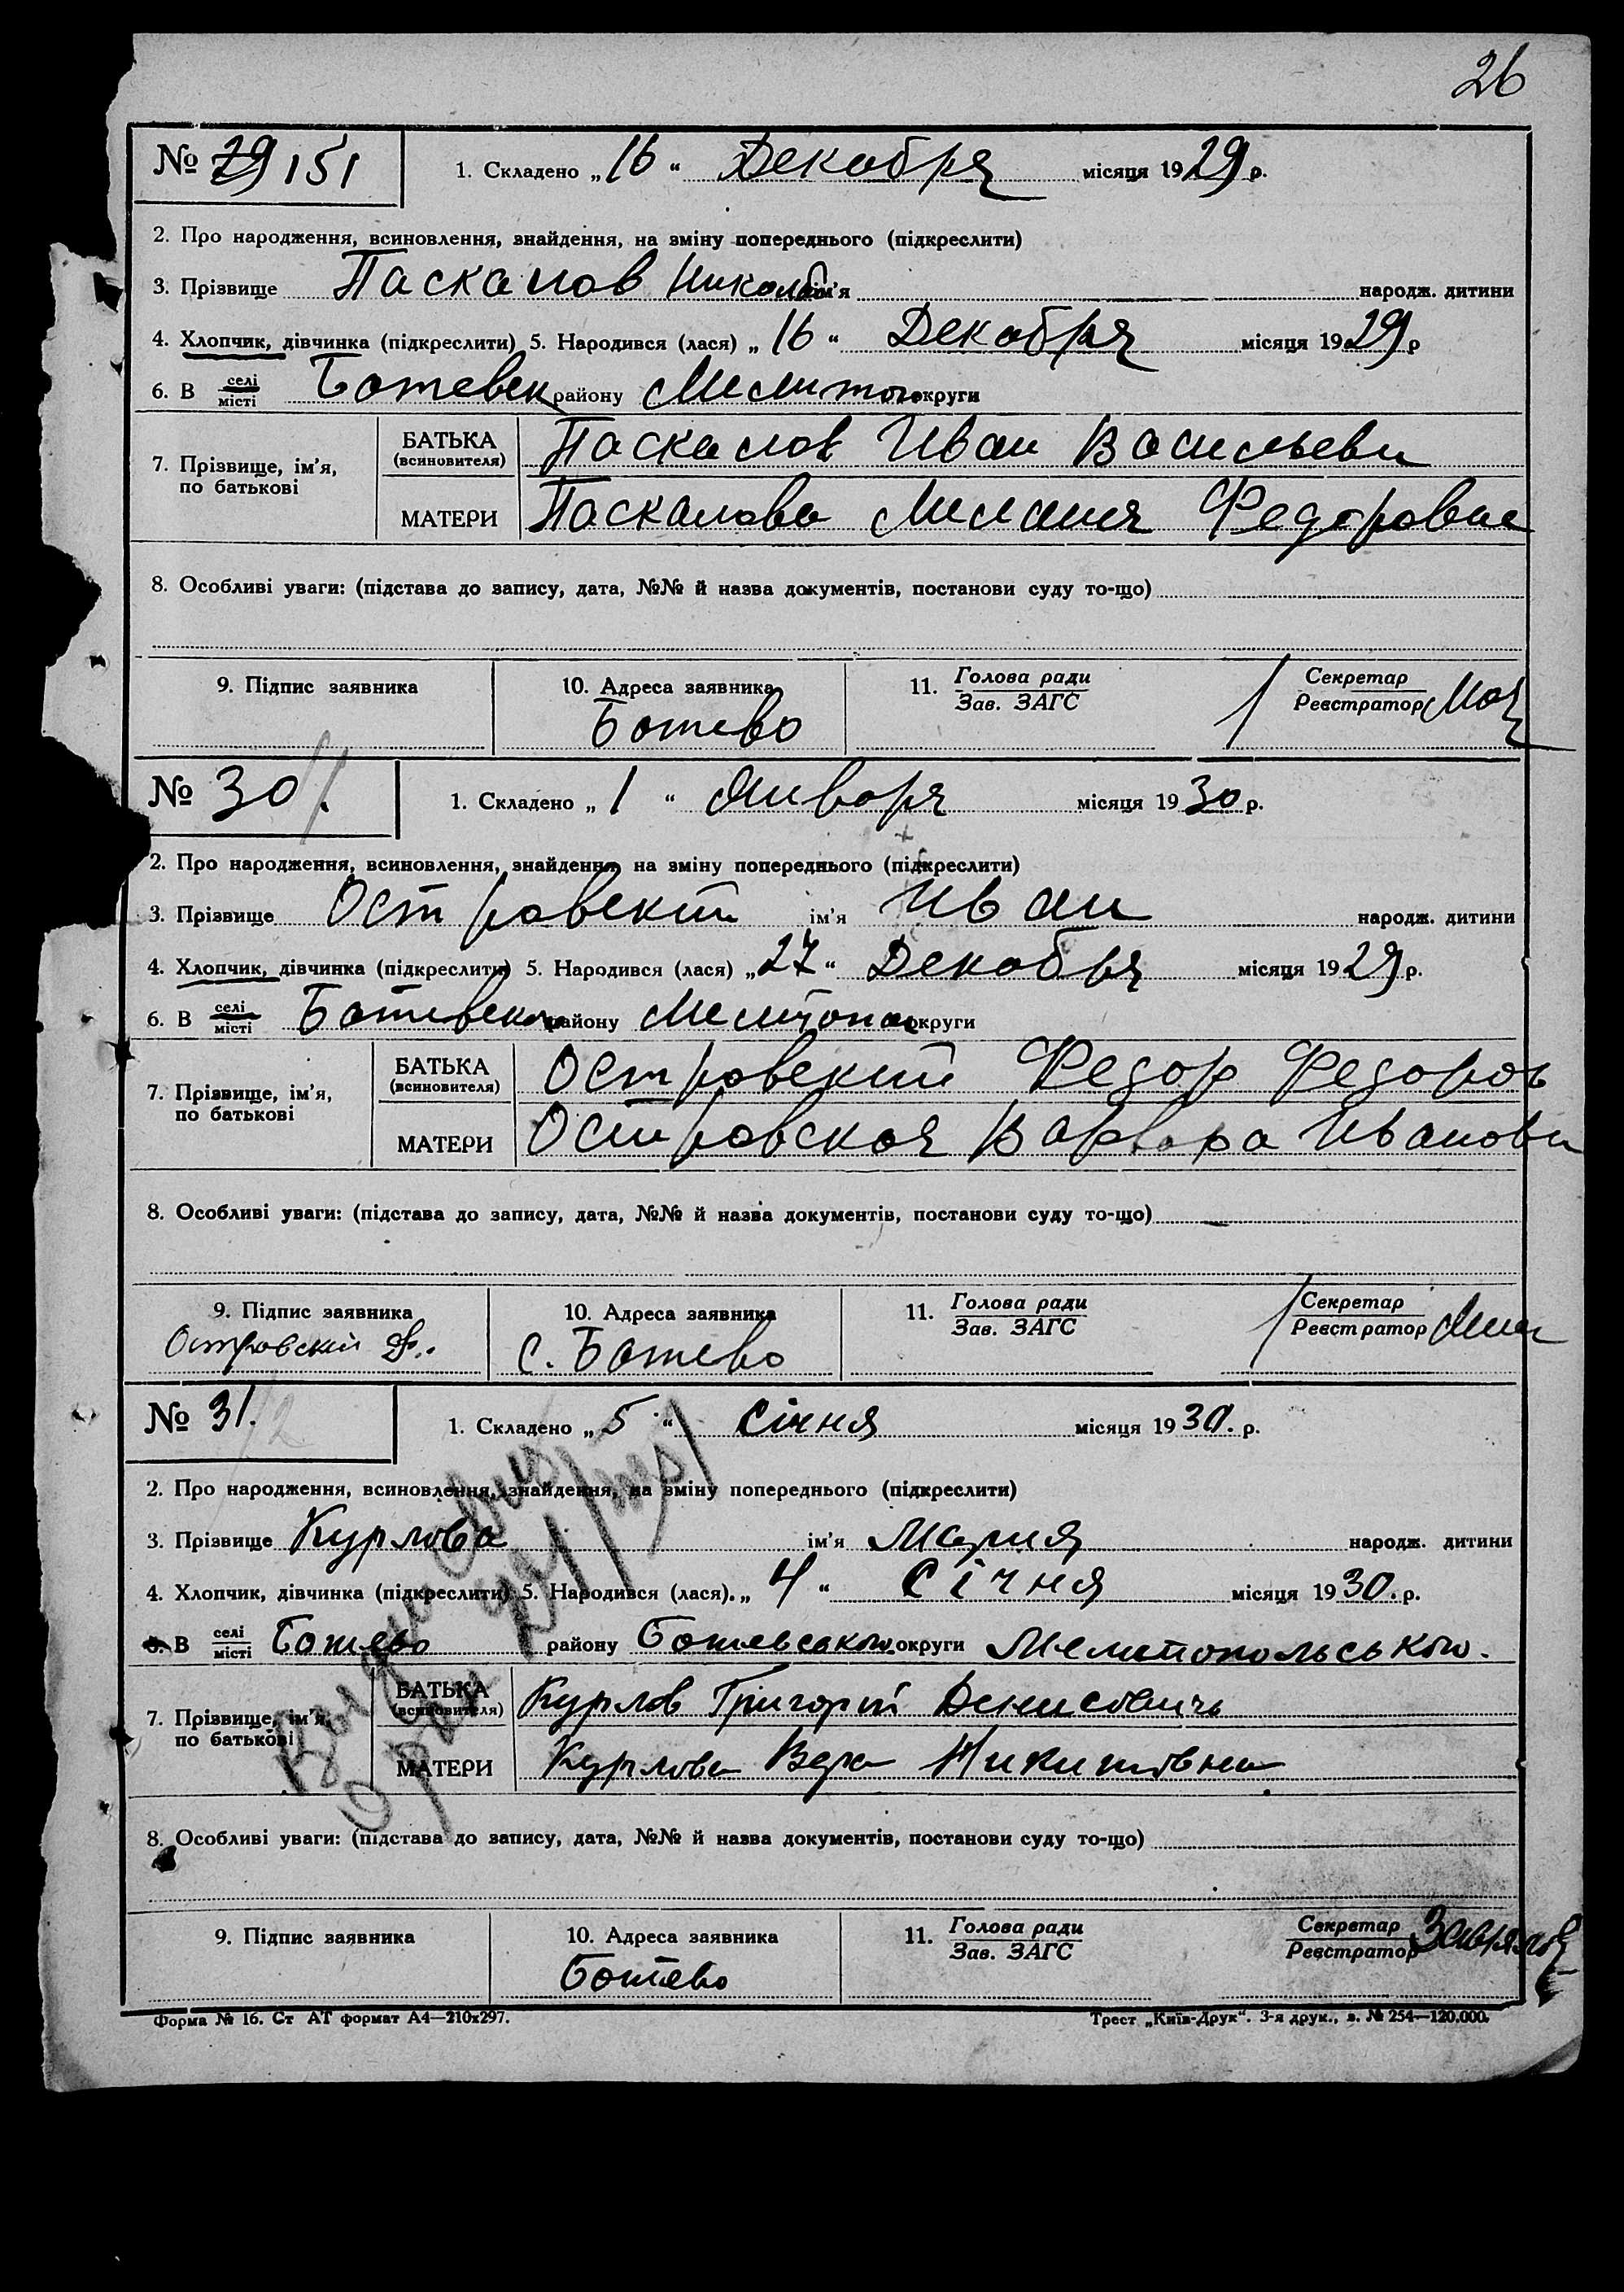 26
№ 29 151 1. Складено „16“ Декабря місяця 1929 р.
2. Про народження, всиновлення, знайдення, на зміну попереднього (підкреслити)
3. Прізвище Паскалов Николай ім'я народж. дитини
4. Хлопчик, дівчинка (підкреслити) 5. Народився (лася) „16“ Декабря місяця 1929 р
6. В селі місті Ботевск району Мелитоп округи
7. Прізвище, ім'я, по батькові БАТЬКА (всиновителя) Паскалов Иван Васильеви
МАТЕРИ Паскалова Милания Федоровна
8. Особливі уваги: (підстава до запису, дата, №№ й назва документів, постанови суду то-що)
9. Підпис заявника 10. Адреса заявника 11. Голова ради Зав. ЗАГС Секретар Реєстратор
Ботево
№ 30 1. Складено „1“ Января місяця 1930 р.
2. Про народження, всиновлення, знайдення, на зміну попереднього (підкреслити)
3. Прізвище Островский ім'я Иван народж. дитини
4. Хлопчик, дівчинка (підкреслити) 5. Народився (лася) „27“ Декабря місяця 1929 р.
6. В селі місті Ботевско району Мелитопол округи
7. Прізвище, ім'я, по батькові БАТЬКА (всиновителя) Островский Федор Федоров
МАТЕРИ Островская Варвара Иванови
8. Особливі уваги: (підстава до запису, дата, №№ й назва документів, постанови суду то-що)
9. Підпис заявника 10. Адреса заявника 11. Голова ради Зав. ЗАГС Секретар Реєстратор
Островский Ф.. С. Ботево
№ 31. 1. Складено „5“ січня місяця 1930. р.
2. Про народження, всиновлення, знайдення, на зміну попереднього (підкреслити)
3. Прізвище Курлова ім'я Мария народж. дитини
4. Хлопчик, дівчинка (підкреслити) 5. Народився (лася). „4“ січня місяця 1930. р.
6. В селі місті Ботево району Ботевського округи Мелитопольського.
7. Прізвище, ім'я, по батькові БАТЬКА (всиновителя) Курлов Григорій Денисович
МАТЕРИ Курлова Вера Никитовна
8. Особливі уваги: (підстава до запису, дата, №№ й назва документів, постанови суду то-що)
9. Підпис заявника 10. Адреса заявника 11. Голова ради Зав. ЗАГС Секретар Реєстратор
Ботево
Форма № 16. Ст АТ формат А4—210х297. Трест „Київ-Друк“. 3-я друк., з. № 254—120.000.